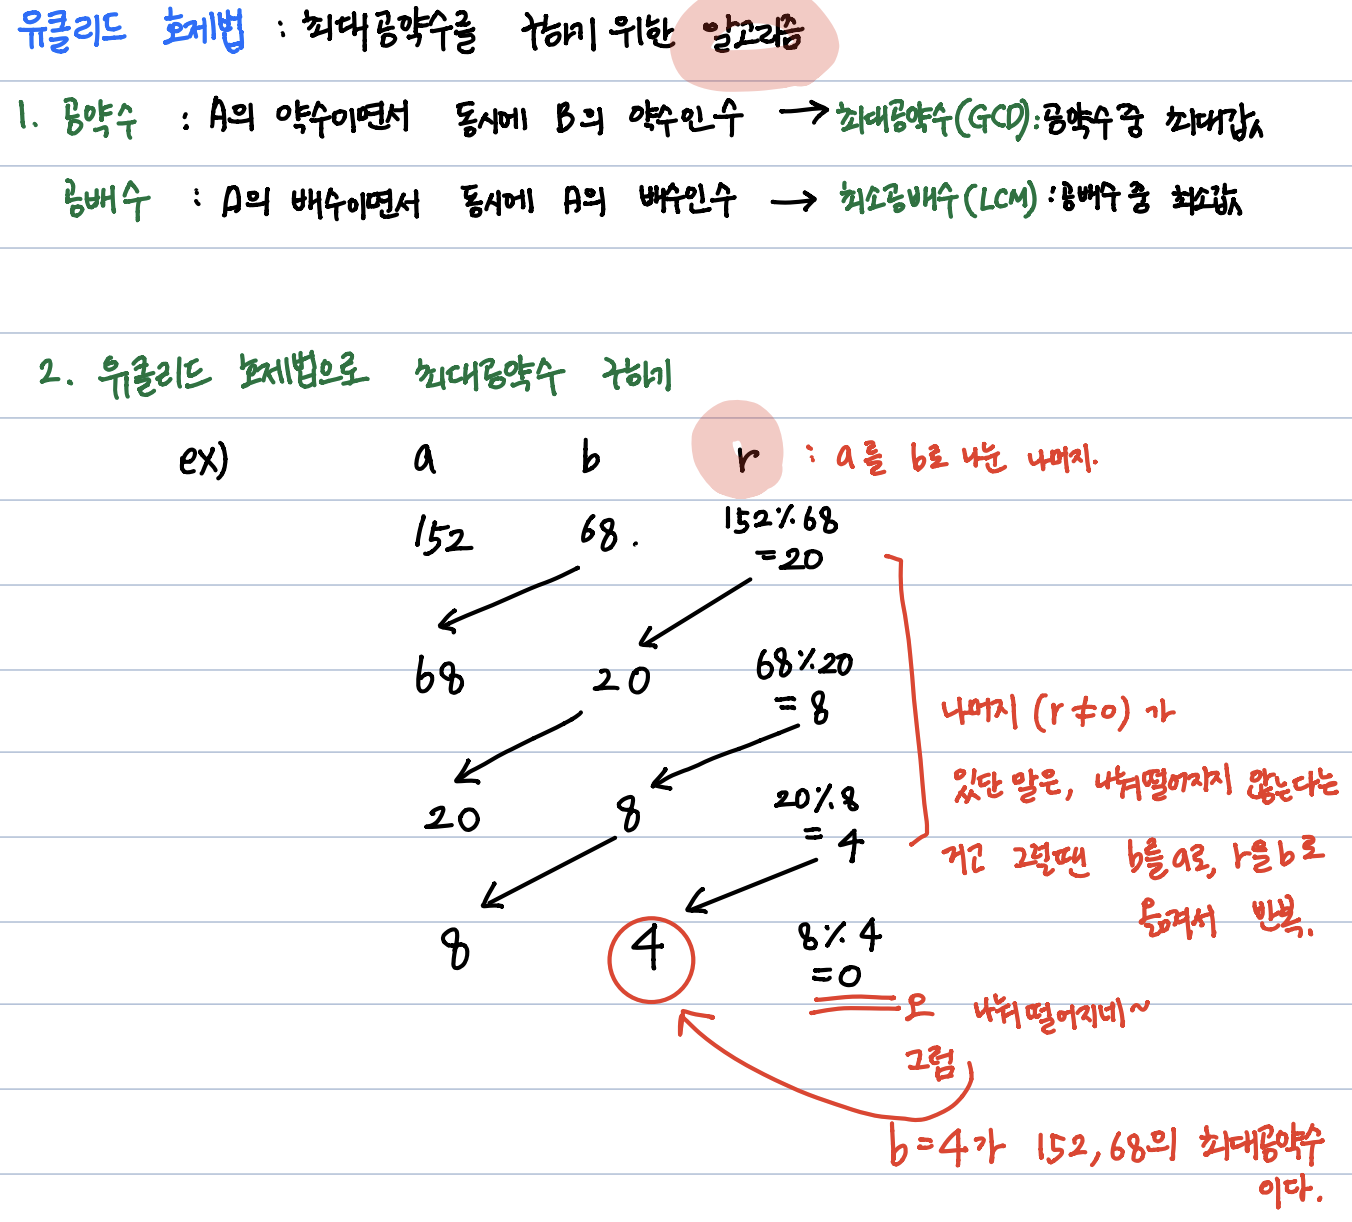 유클리드 호제법 : 최대공약수를 구하기 위한 알고리즘
1. 공약수 : A의 약수이면서 동시에 B의 약수인 수 → 최대공약수(GCD) : 공약수 중 최대값
공배수 : A의 배수이면서 동시에 A의 배수인 수 → 최소공배수(LCM) : 공배수 중 최소값
2. 유클리드 호제법으로 최대공약수 구하기
ex) a b r : a를 b로 나눈 나머지.
152 68. 152%68
=20
68 20 68%20
= 8
나머지 (r≠0) 가
있단 말은, 나눠떨어지지 않는다는
20 8 20%8
= 4
거고 그럴땐 b를 a로, r을 b로
옮겨서 반복.
8 4 8%4
=0
오 나눠떨어지네~
그럼
b=4가 152, 68의 최대공약수
이다.